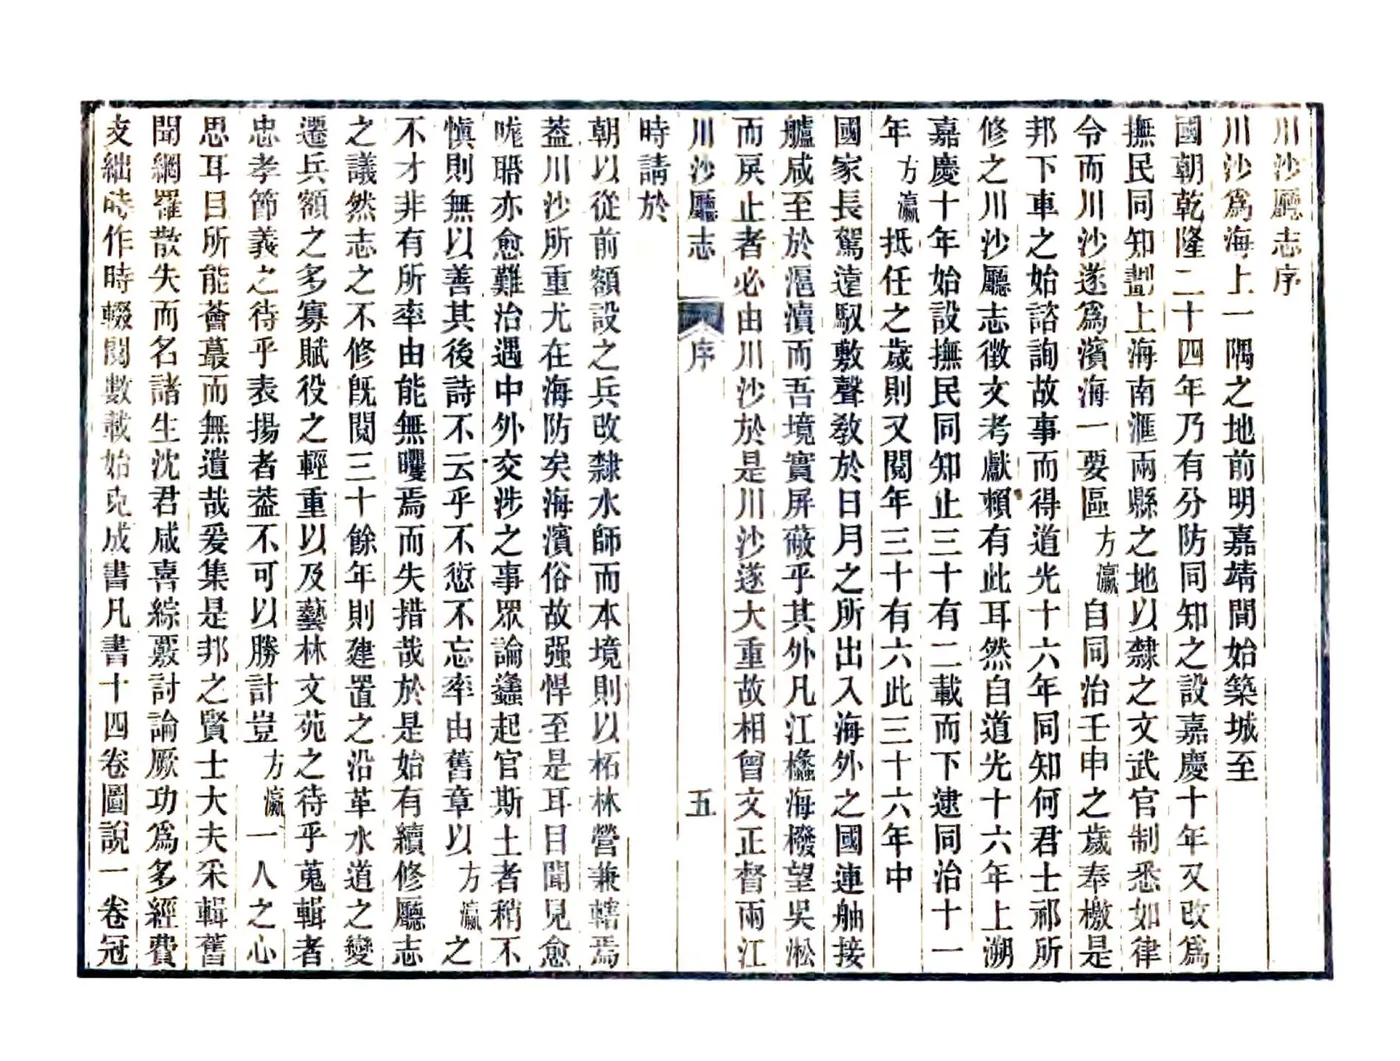 川沙廳志序
川沙爲海上一隅之地前明嘉靖間始築城至
國朝乾隆二十四年乃有分防同知之設嘉慶十年又改爲
撫民同知劃上海南滙兩縣之地以隸之文武官制悉如律
令而川沙遂爲濱海一要區方瀛自同治壬申之歲奉檄是
邦下車之始諮詢故事而得道光十六年同知何君士祁所
修之川沙廳志徵文考獻賴有此耳然自道光十六年上溯
嘉慶十年始設撫民同知止三十有二載而下逮同治十一
年方瀛抵任之歲則又閱年三十有六此三十六年中
國家長駕遠馭敷聲敎於日月之所出入海外之國連舳接
艫咸至於滬瀆而吾境實屏蔽乎其外凡江蠡海橃望吳淞
而戾止者必由川沙於是川沙遂大重故相曾文正督兩江
川沙廳志 序 五
時請於
朝以從前額設之兵改隸水師而本境則以柘林營兼轄焉
葢川沙所重尤在海防矣海濱俗故强悍至是耳目聞見愈
咙聒亦愈難治遇中外交涉之事眾論蠭起官斯土者稍不
愼則無以善其後詩不云乎不愆不忘率由舊章以方瀛之
不才非有所率由能無戄焉而失措哉於是始有續修廳志
之議然志之不修旣閱三十餘年則建置之沿革水道之變
遷兵額之多寡賦役之輕重以及藝林文苑之待乎蒐輯者
忠孝節義之待乎表揚者葢不可以勝計豈方瀛一人之心
思耳目所能薈蕞而無遺哉爰集是邦之賢士大夫采輯舊
聞網羅散失而名諸生沈君咸喜綜覈討論厥功爲多經費
支絀時作時輟閱數載始克成書凡書十四卷圖說一卷冠